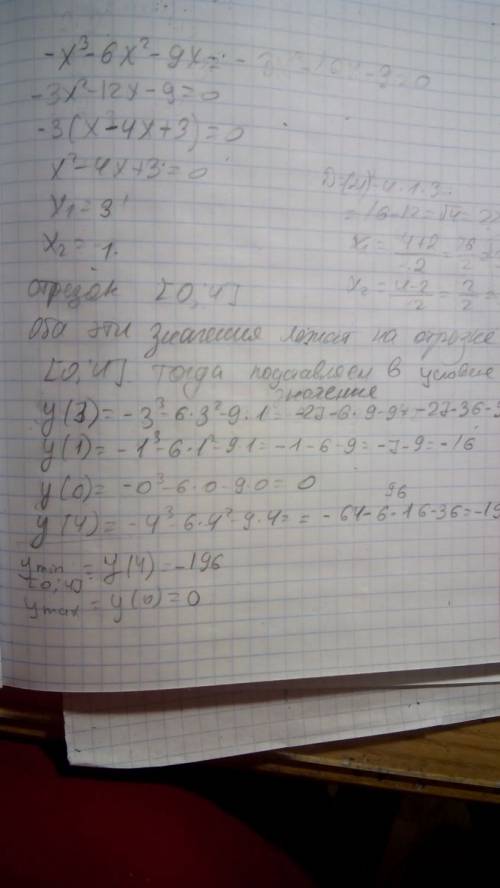 -x³-6x²-9x=
-3x²-12x-9=0
-3(x²-4x+3)=0
x²-4x+3=0
x₁=3
x₂=1.
=16-12=√4=2
x₁=4+2/2=6/2
x₂=4-2/2=2/2=
отрезок [0;4]
Оба эти значения лежат на отрезке
[0;4]. Тогда подставляем в условие
значения
y(3)=-3³-6·3²-9·1=-27-6·9-9=-27-36-
y(1)=-1³-6·1²-9·1=-1-6-9=-7-9=-16
y(0)=-0³-6·0-9·0=0
96
y(4)=-4³-6·4²-9·4==-64-6·16-36=-19
ymin=y(4)=-196
[0;4]
ymax=y(0)=0